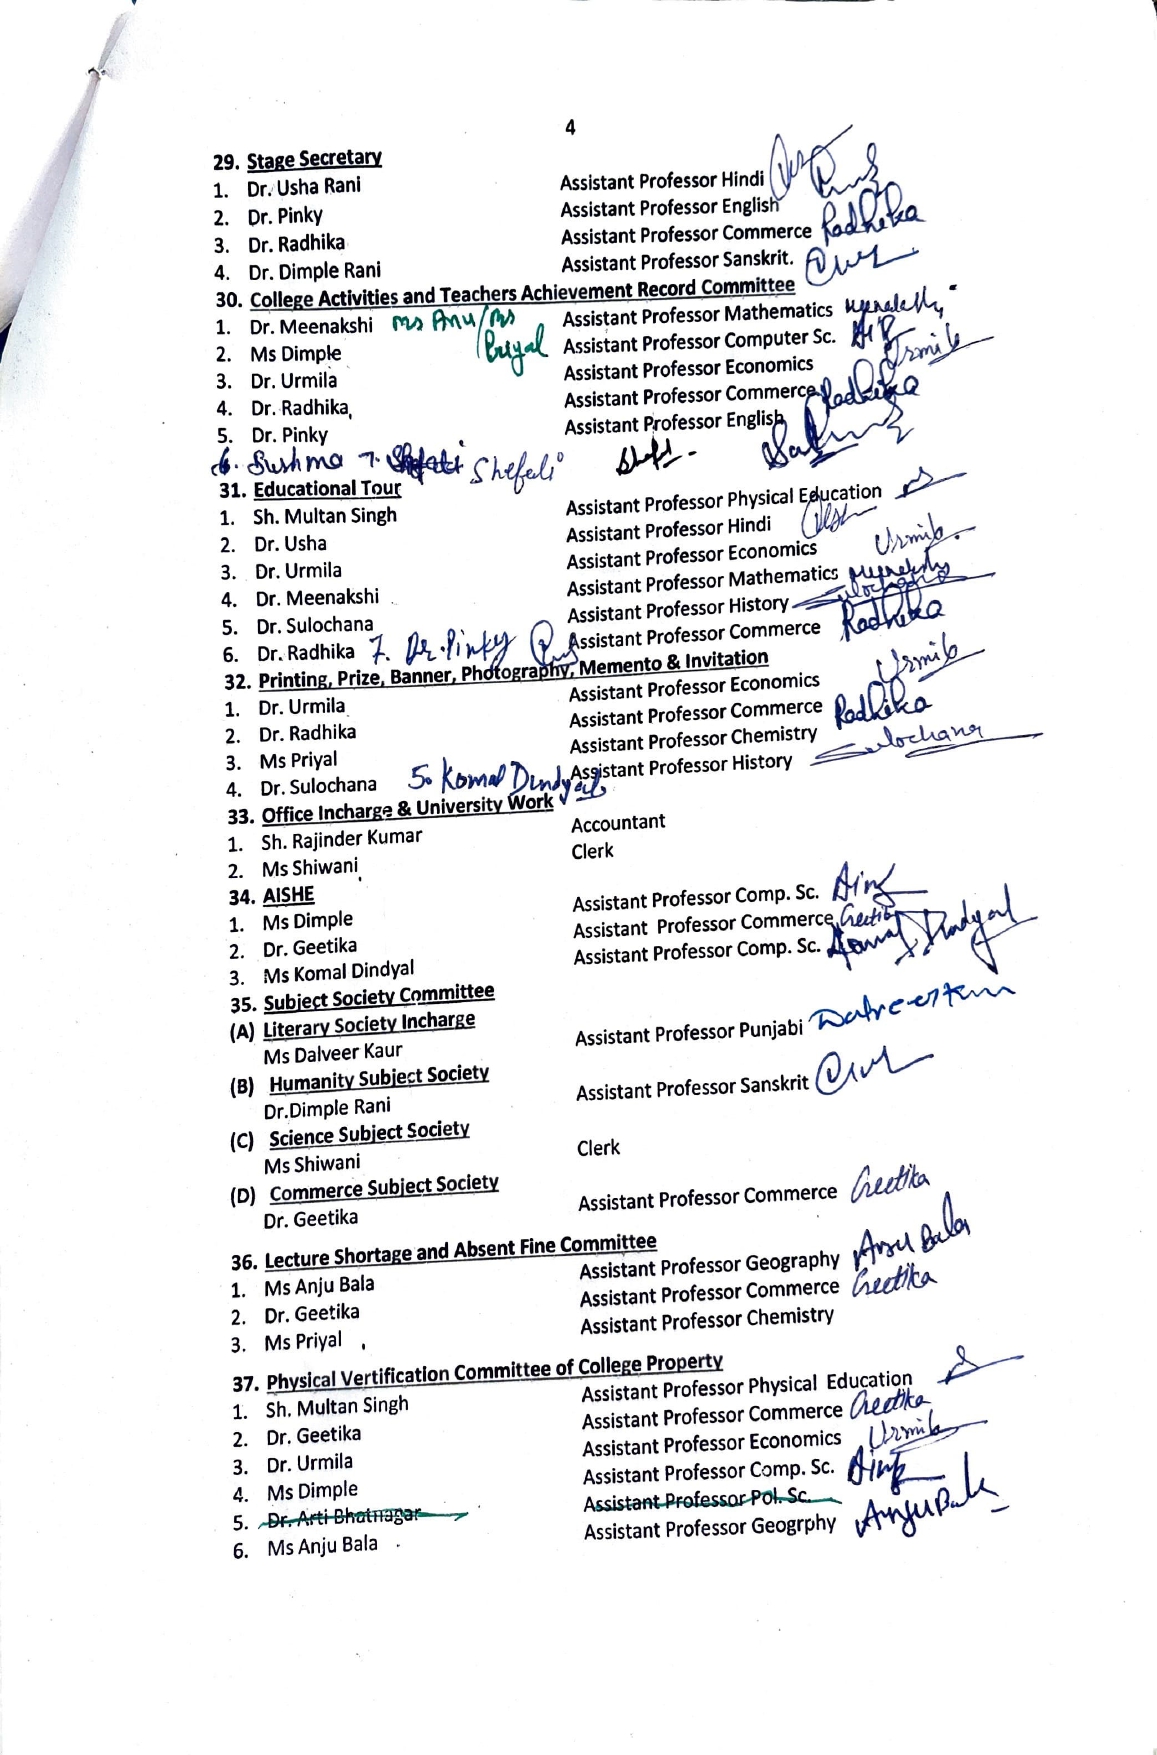 4
29. Stage Secretary
1. Dr. Usha Rani Assistant Professor Hindi
2. Dr. Pinky Assistant Professor English
3. Dr. Radhika Assistant Professor Commerce Radhika
4. Dr. Dimple Rani Assistant Professor Sanskrit.
30. College Activities and Teachers Achievement Record Committee
1. Dr. Meenakshi Ms Anu/Ms Priyal Assistant Professor Mathematics
2. Ms Dimple Assistant Professor Computer Sc.
3. Dr. Urmila Assistant Professor Economics Urmila
4. Dr. Radhika, Assistant Professor Commerce Radhika
5. Dr. Pinky Assistant Professor English
6. Sushma 7. Shefali
31. Educational Tour
1. Sh. Multan Singh Assistant Professor Physical Education
2. Dr. Usha Assistant Professor Hindi
3. Dr. Urmila Assistant Professor Economics Urmila
4. Dr. Meenakshi Assistant Professor Mathematics
5. Dr. Sulochana Assistant Professor History Sulochana
6. Dr. Radhika 7. Dr. Pinky Assistant Professor Commerce Radhika
32. Printing, Prize, Banner, Photography, Memento & Invitation
1. Dr. Urmila Assistant Professor Economics Urmila
2. Dr. Radhika Assistant Professor Commerce Radhika
3. Ms Priyal Assistant Professor Chemistry
4. Dr. Sulochana 5. Komal Dindyal Assistant Professor History Sulochana
33. Office Incharge & University Work
1. Sh. Rajinder Kumar Accountant
2. Ms Shiwani Clerk
34. AISHE
1. Ms Dimple Assistant Professor Comp. Sc.
2. Dr. Geetika Assistant Professor Commerce Geetika
3. Ms Komal Dindyal Assistant Professor Comp. Sc. Komal Dindyal
35. Subject Society Committee
(A) Literary Society Incharge
Ms Dalveer Kaur Assistant Professor Punjabi
(B) Humanity Subject Society
Dr.Dimple Rani Assistant Professor Sanskrit
(C) Science Subject Society
Ms Shiwani Clerk
(D) Commerce Subject Society
Dr. Geetika Assistant Professor Commerce Geetika
36. Lecture Shortage and Absent Fine Committee
1. Ms Anju Bala Assistant Professor Geography Anju Bala
2. Dr. Geetika Assistant Professor Commerce Geetika
3. Ms Priyal Assistant Professor Chemistry
37. Physical Vertification Committee of College Property
1. Sh. Multan Singh Assistant Professor Physical Education
2. Dr. Geetika Assistant Professor Commerce Geetika
3. Dr. Urmila Assistant Professor Economics Urmila
4. Ms Dimple Assistant Professor Comp. Sc.
5. Dr. Arti Bhatnagar Assistant Professor Pol. Sc.
6. Ms Anju Bala Assistant Professor Geogrphy Anju Bala